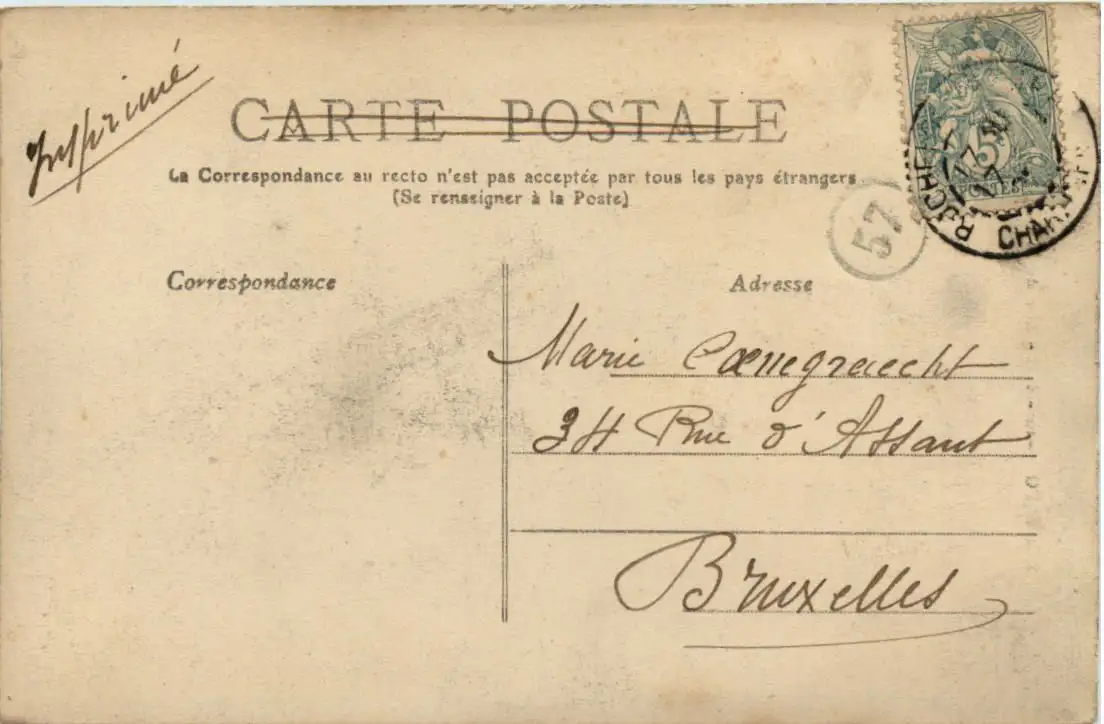 Imprimé
CARTE POSTALE
La Correspondance au recto n'est pas acceptée par tous les pays étrangers
(Se renseigner à la Poste)
5
POSTES
57
Correspondance
Adresse
Marie Coenegraecht
34 Rue d'Assaut
Bruxelles